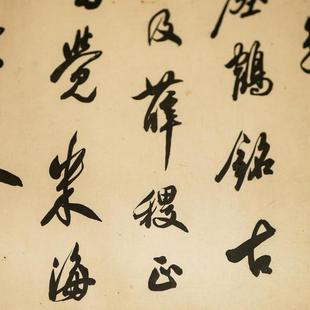 鶴銘古
及薛稷正
覺米海